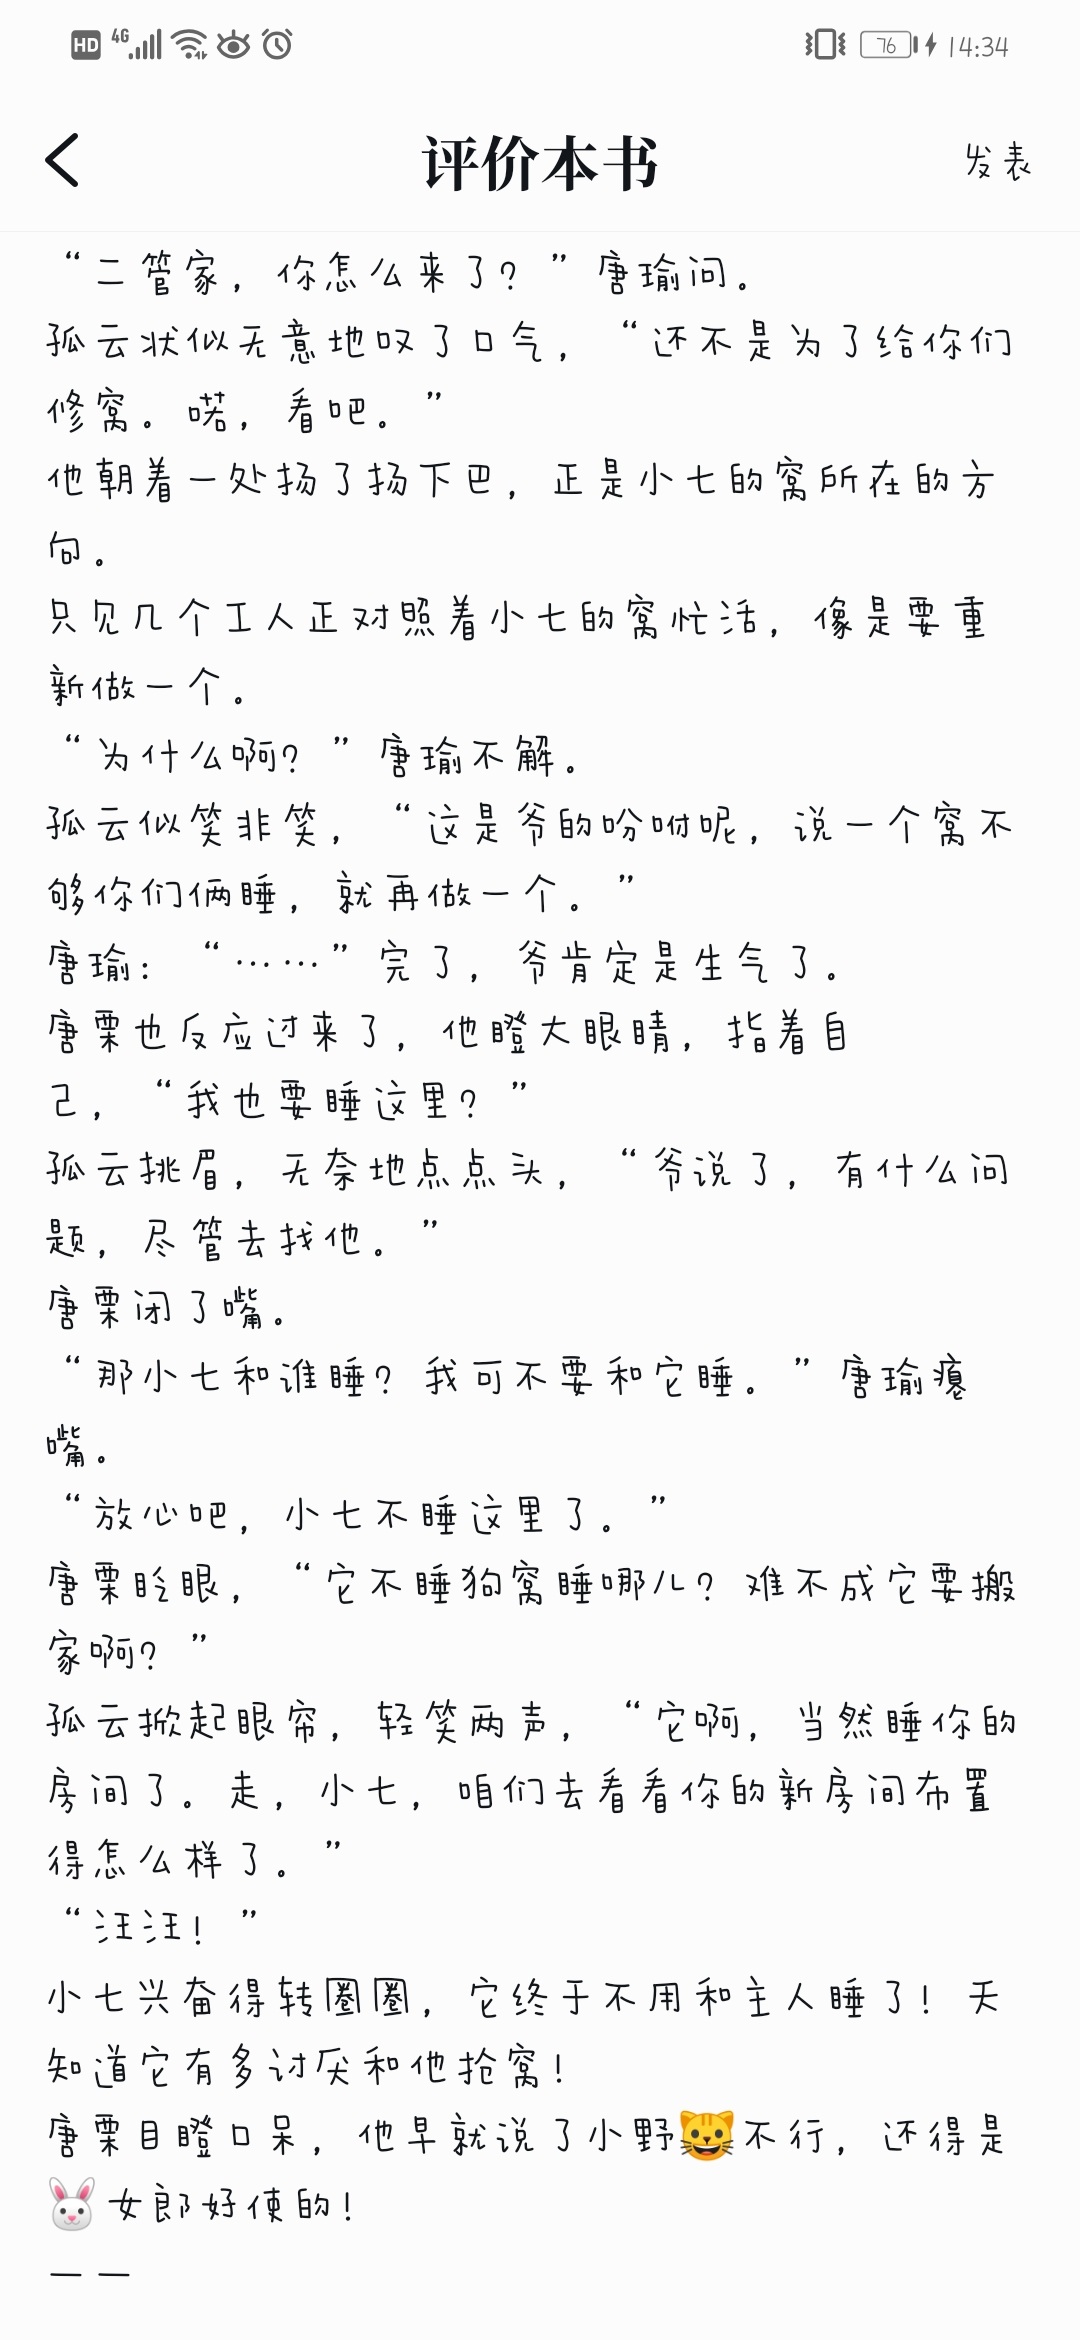 HD 4G 76 14:34
评价本书 发表
“二管家，你怎么来了？”唐瑜问。
孤云状似无意地叹了口气，“还不是为了给你们
修窝。喏，看吧。”
他朝着一处扬了扬下巴，正是小七的窝所在的方
向。
只见几个工人正对照着小七的窝忙活，像是要重
新做一个。
“为什么啊？”唐瑜不解。
孤云似笑非笑，“这是爷的吩咐呢，说一个窝不
够你们俩睡，就再做一个。”
唐瑜：“……”完了，爷肯定是生气了。
唐栗也反应过来了，他瞪大眼睛，指着自
己，“我也要睡这里？”
孤云挑眉，无奈地点点头，“爷说了，有什么问
题，尽管去找他。”
唐栗闭了嘴。
“那小七和谁睡？我可不要和它睡。”唐瑜瘪
嘴。
“放心吧，小七不睡这里了。”
唐栗眨眼，“它不睡狗窝睡哪儿？难不成它要搬
家啊？”
孤云掀起眼帘，轻笑两声，“它啊，当然睡你的
房间了。走，小七，咱们去看看你的新房间布置
得怎么样了。”
“汪汪！”
小七兴奋得转圈圈，它终于不用和主人睡了！天
知道它有多讨厌和他抢窝！
唐栗目瞪口呆，他早就说了小野😺不行，还得是
🐰女郎好使的！
——